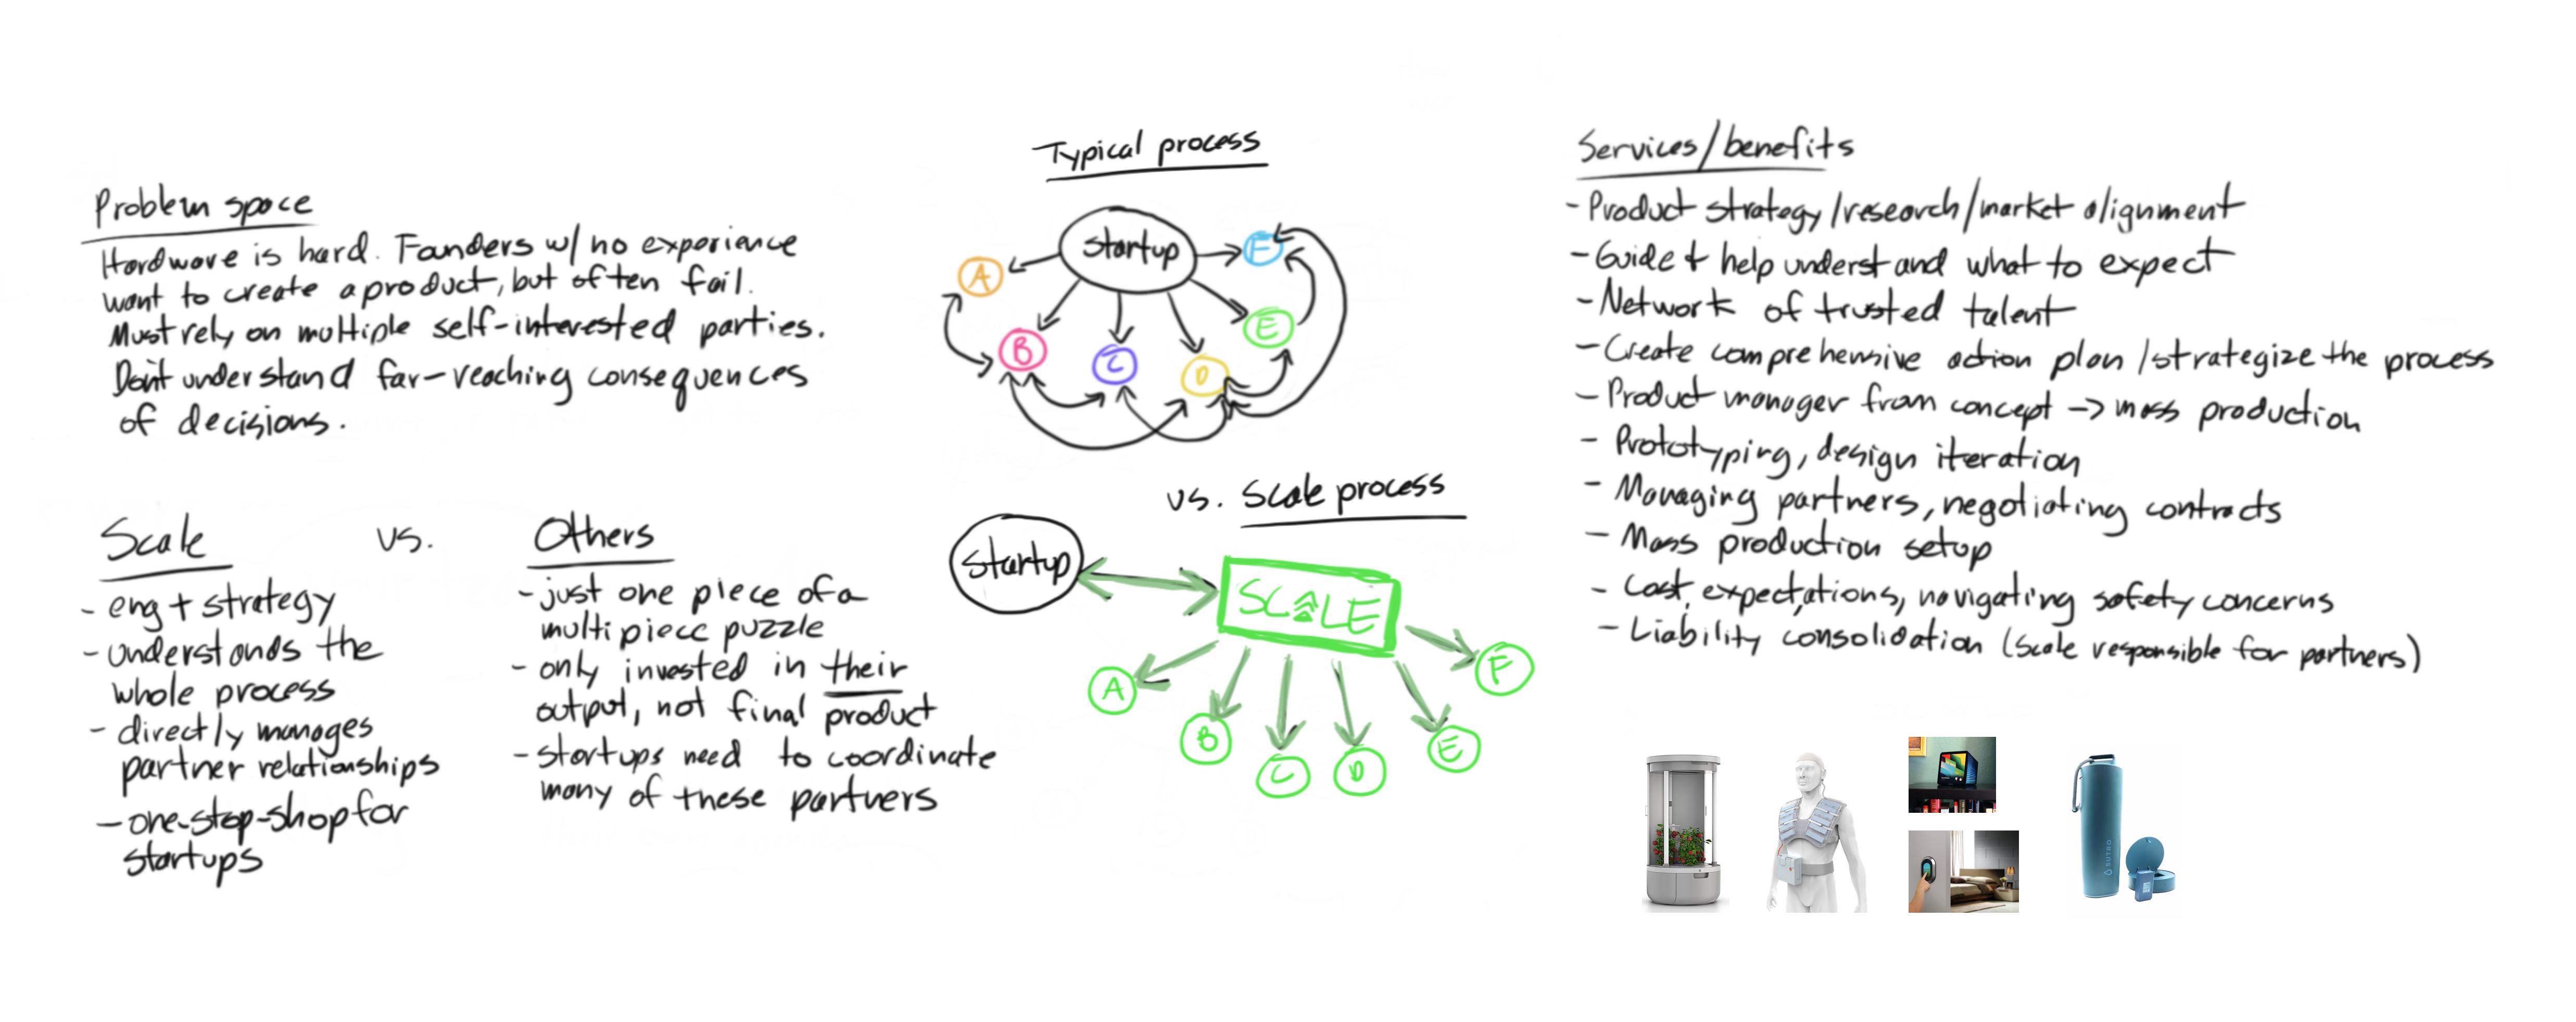 Problem space
Hardware is hard. Founders w/ no experience
want to create a product, but often fail.
Must rely on multiple self-interested parties.
Don't understand far-reaching consequences
of decisions.
Scale
vs.
Others
- eng + strategy
- understands the
whole process
- directly manages
partner relationships
- one-stop-shop for
startups
- just one piece of a
multipiece puzzle
- only invested in their
output, not final product
- startups need to coordinate
many of these partners
Typical process
Startup
A
B
C
D
E
F
vs. Scale process
Startup
SCALE
A
B
C
D
E
F
Services/benefits
- Product strategy/research/market alignment
- Guide + help understand what to expect
- Network of trusted talent
- Create comprehensive action plan/strategize the process
- Product manager from concept -> mass production
- Prototyping, design iteration
- Managing partners, negotiating contracts
- Mass production setup
- Cost, expectations, navigating safety concerns
- Liability consolidation (Scale responsible for partners)
SUTRO